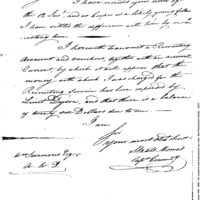 I have received your letter of
the 12 Inst. and as he is a likely young fellow
I have settled the difference at
him.
I herewith transmit a Recruiting
Account and vouchers, together with an account
Current, by which it will appear that the
money with which I was charged for the
Recruiting Service has been expended by
Lieut Dyson, and that there is a balance
of twenty six Dollars due to me.
I am
Sir
your most Obt Servt
Capt
Wm Simmons Esqr
A. W. D